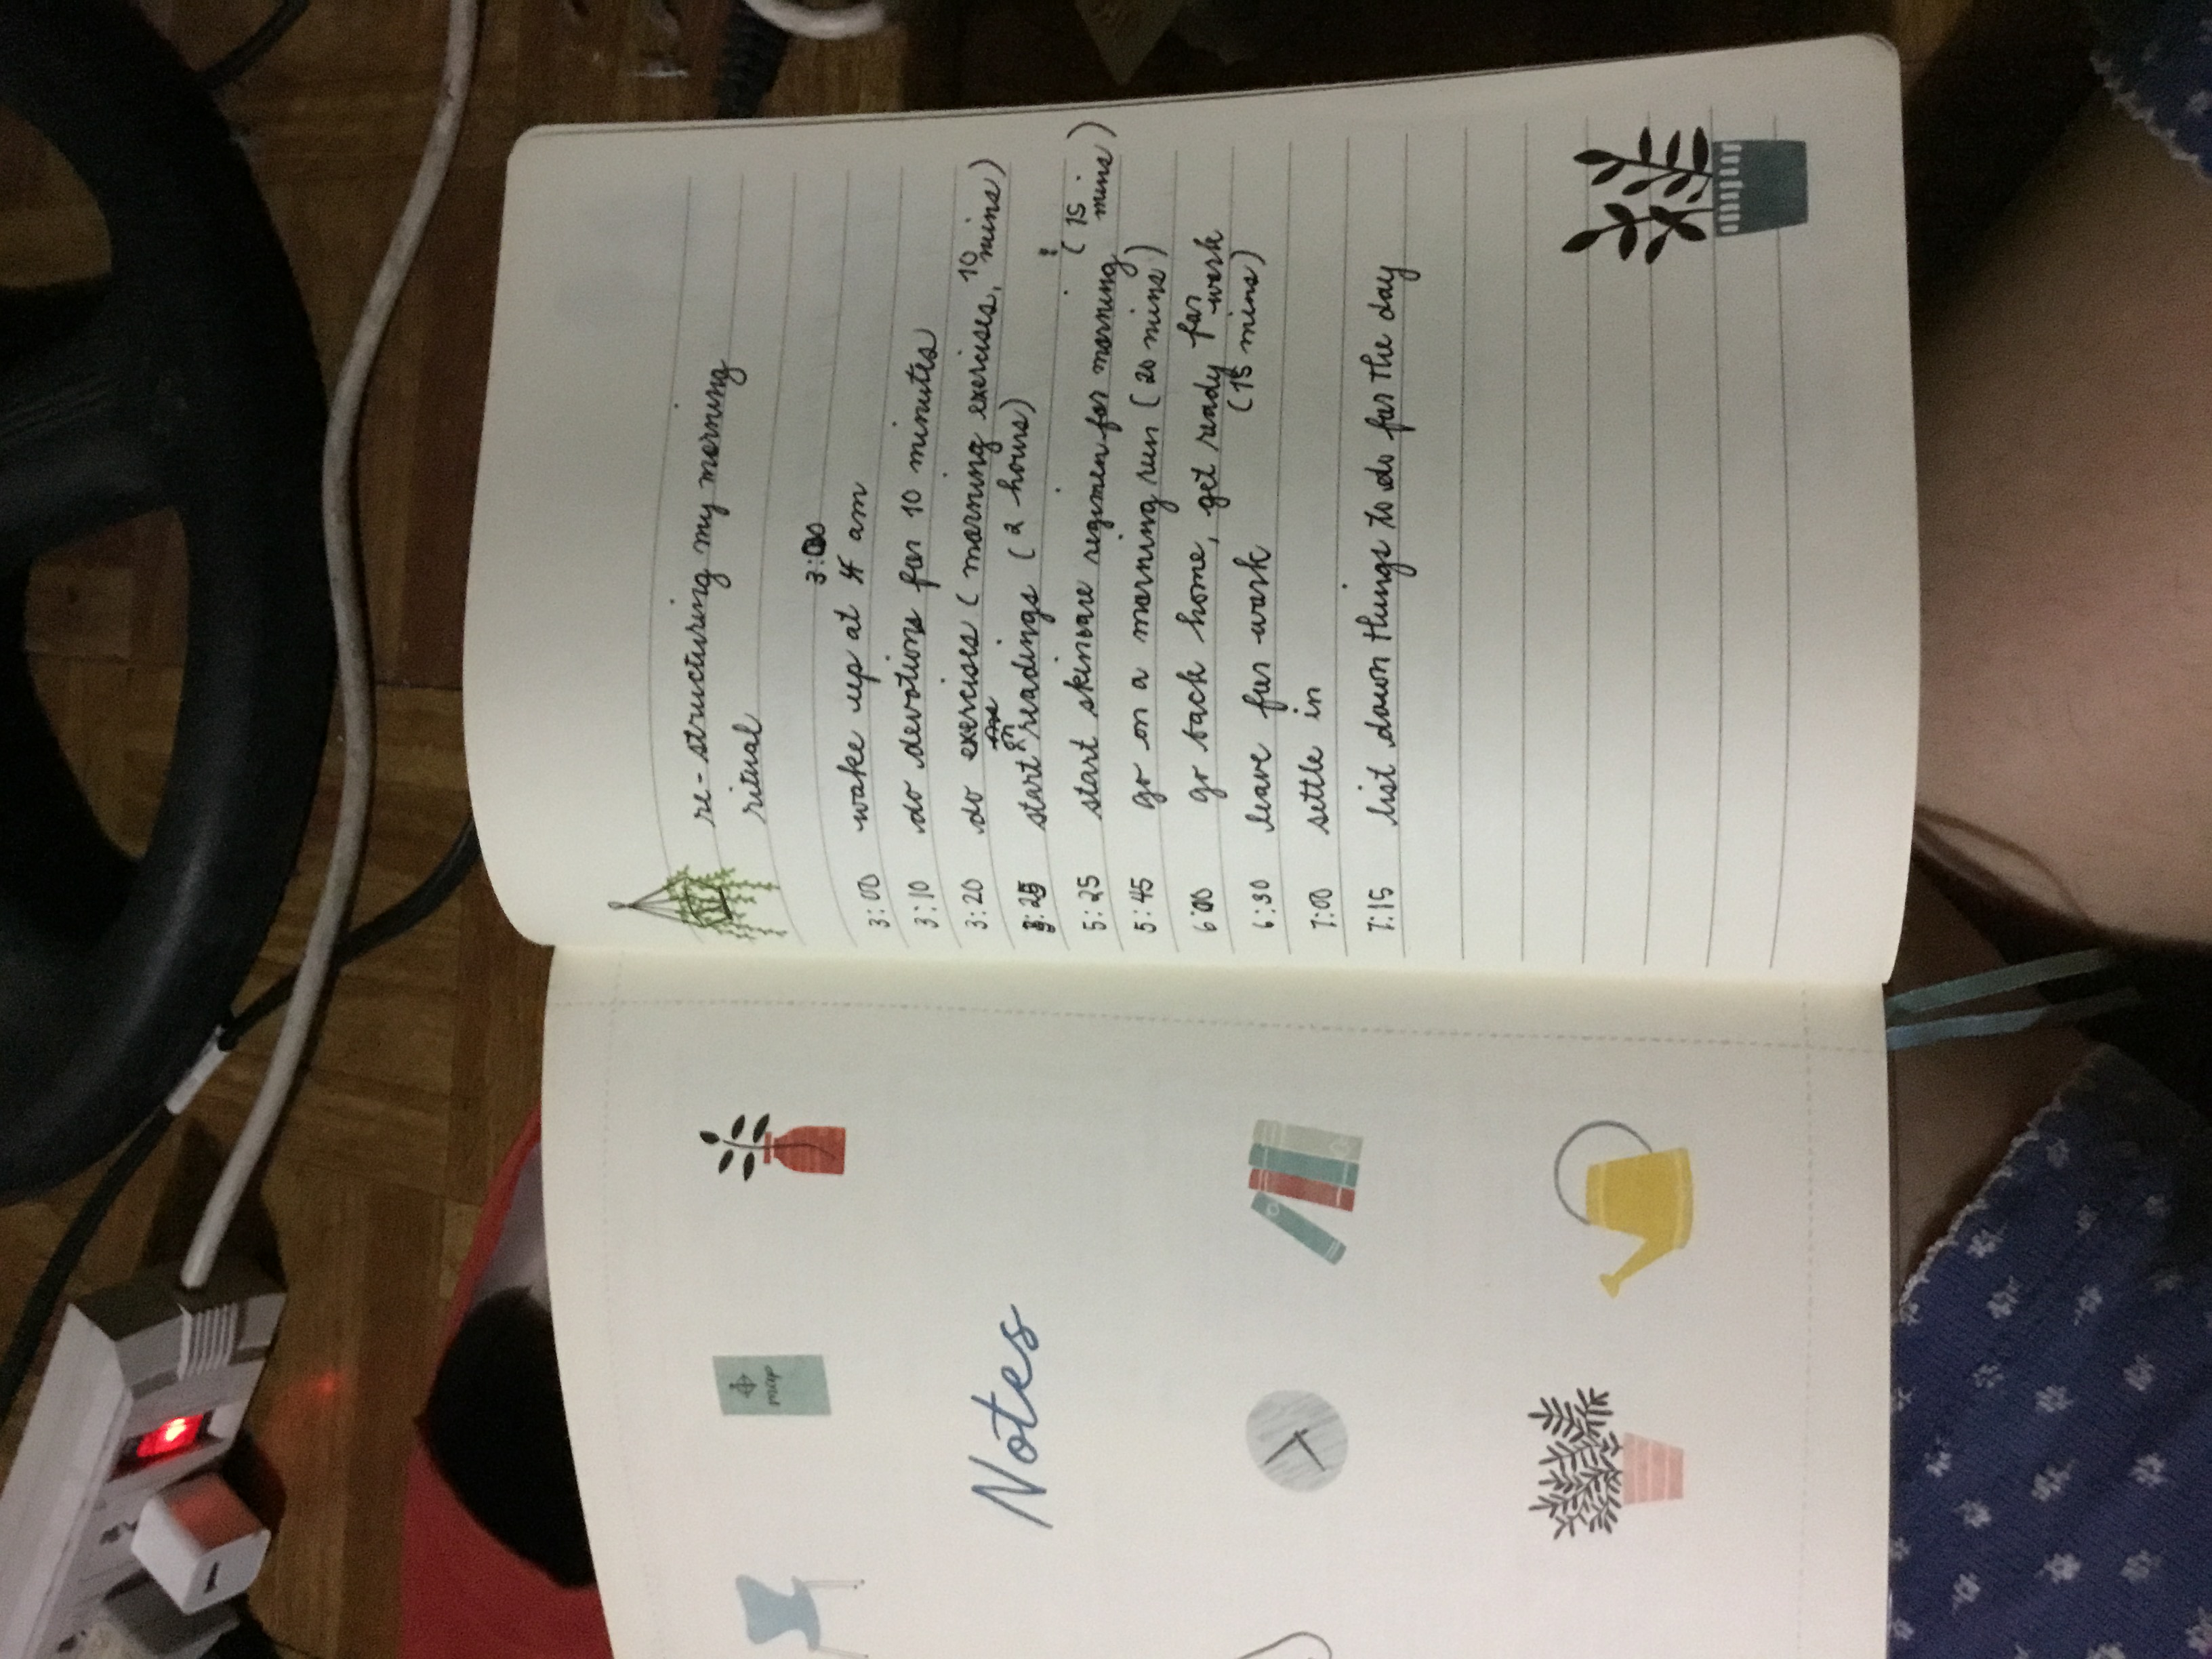 Notes
map
re-structuring my morning
ritual
3:00
3:00 wake up at 4 am
3:10 do devotions for 10 minutes
3:20 do exercises (morning exercises, 10 mins)
on
3:25 start readings (2 hours)
5:25 start skincare regimen for morning (15 mins)
5:45 go on a morning run (20 mins)
6:00 go back home, get ready for work
(15 mins)
6:30 leave for work
7:00 settle in
7:15 list down things to do for the day